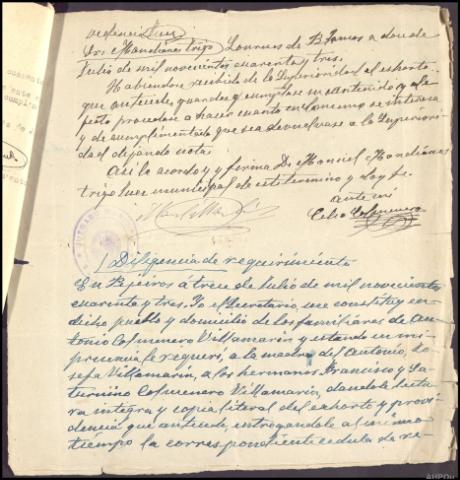 Providencia Juez
Sr. Mandianes Trigo Lourdes de B. Tomas a doce de
Julio de mil novecientos cuarenta y tres.
Habiendose recibido de la Superioridad el exhorto
que antecede, guardese y cumplase su contenido, y al e-
fecto procedase a hacer cuanto en el mismo se interesa
y de cumplimentado que sea devuelvase a la Superiori-
dad dejando nota.
Asi lo acordo y firma D. Manuel Mandianes
Trigo Juez municipal de este termino y doy fe.
ante mi
Celso Colmenero
Diligencia de requirimiento
En Bjeiros a trece de Julio de mil novecientos
cuarenta y tres. Yo el Secretario, me constitui en
dicho pueblo y domicilio de los familiares de An-
tonio Colmenero Villamarin y estando en mi
presencia le requeri, a la madre del Antonio, Jo-
sefa Villamarin, a los hermanos Francisco y Sa-
turnino Colmenero Villamarin, dandole lectu-
ra integra y copia literal del exhorto y provi-
dencia que antecede, entregandole al mismo
tiempo la correspondiente cedula de re-
AHPOu